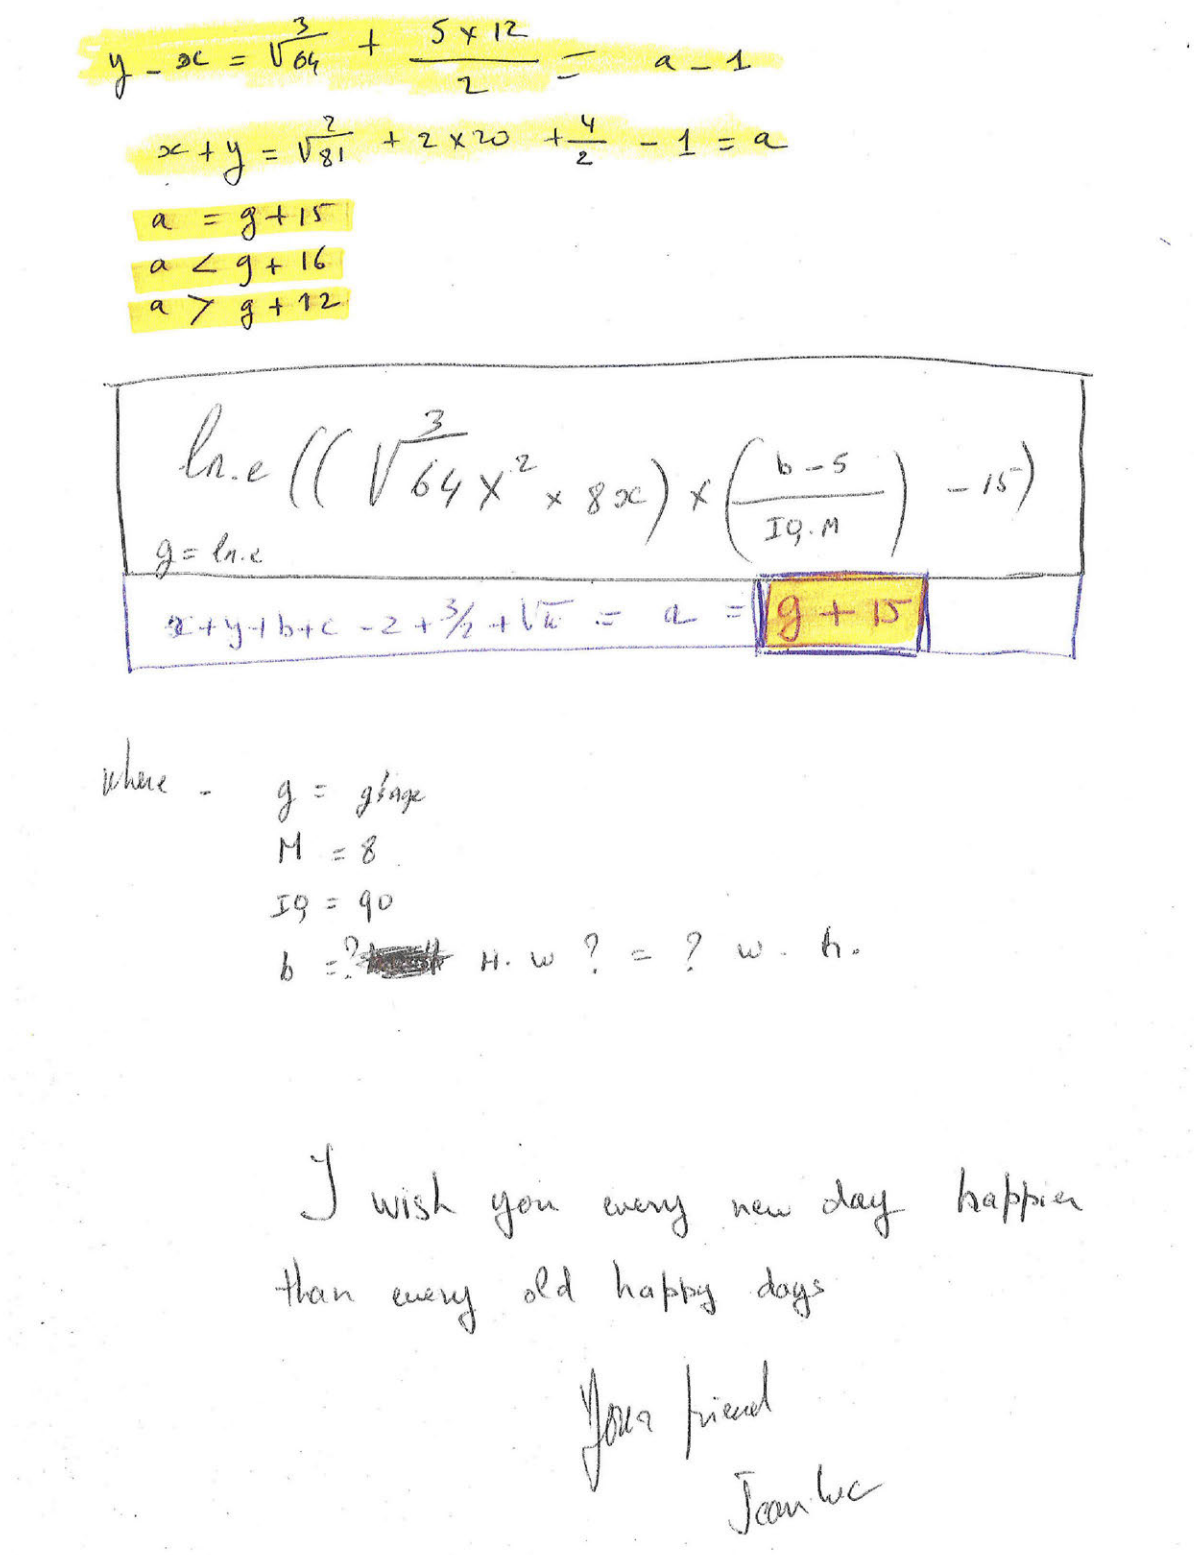 y - x = ∛64 + (5 x 12)/2 = a - 1
x + y = ²√81 + 2 x 20 + 4/2 - 1 = a
a = g + 15
a < g + 16
a > g + 12
ln.e ((∛64x² x 8x) x ((b - 5)/(IQ.M)) - 15)
g = ln.e
x + y + b + c - 2 + 3/2 + √π = a = g + 15
where -
g =
M = 8
IQ = 90
b = ? H. w ? = ? w. h.
I wish you every new day happier
than every old happy days
Your friend
Jean luc